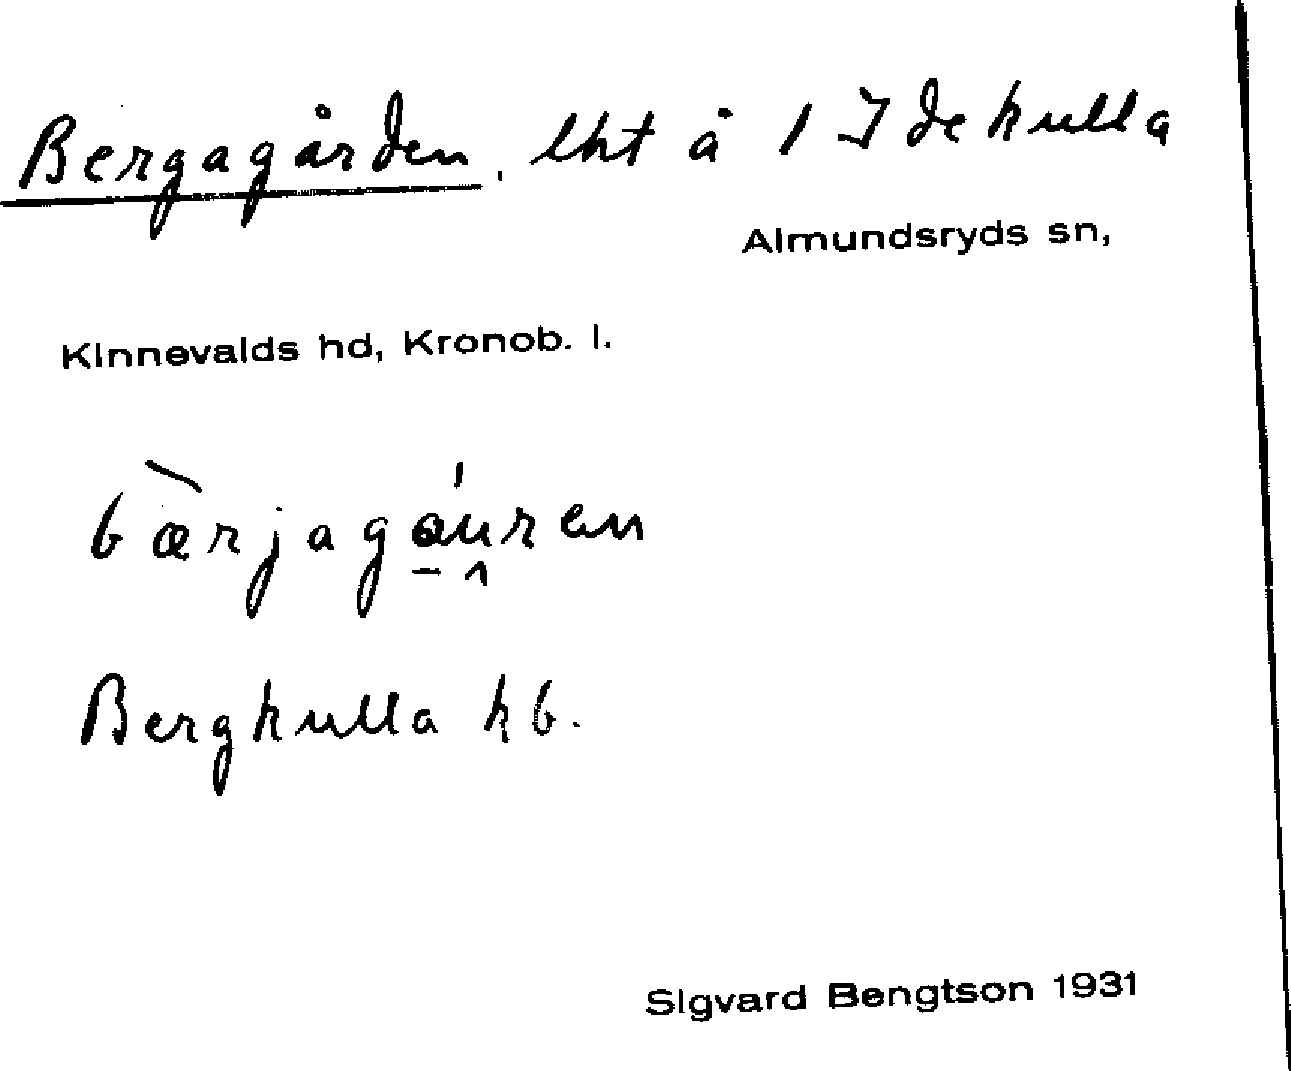 Bergagården, lht å 1 Idekulla
Almundsryds sn,
Kinnevalds hd, Kronob. l.
bæ̀rjagáuren
Bergkulla kb.
Sigvard Bengtson 1931